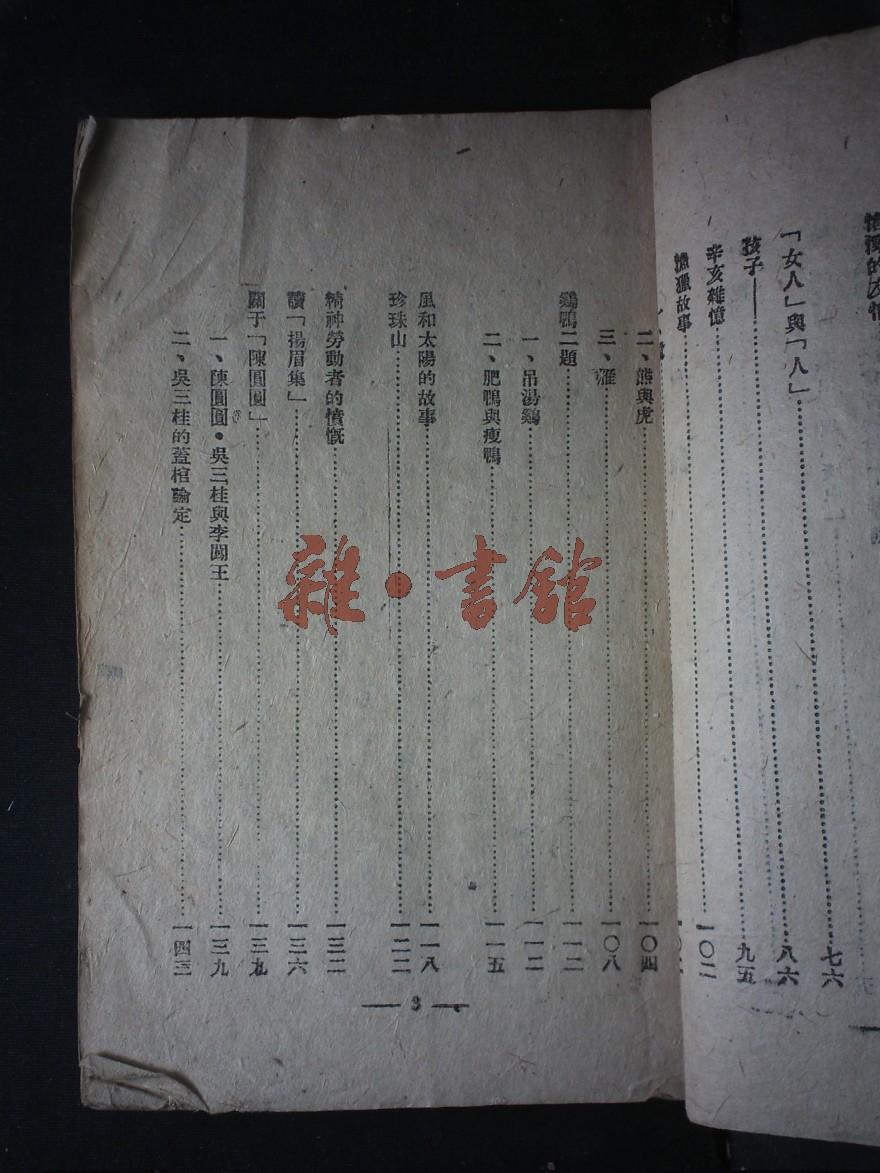 「女人」與「人」………七六
孩子………八六
辛亥雜憶………九五
漁獵故事………一〇二
二、熊與虎………一〇四
三、雁………一〇八
鷄鴨二題………一一二
一、吊湯鷄………一一二
二、肥鴨與瘦鴨………一一五
風和太陽的故事………一一八
珍珠山………一二二
精神勞動者的憤慨………一三二
讀「揚眉集」………一三六
關于「陳圓圓」………一三九
一、陳圓圓•吳三桂與李闖王………一三九
二、吳三桂的蓋棺論定………一四三
— 3 —
雜·書館